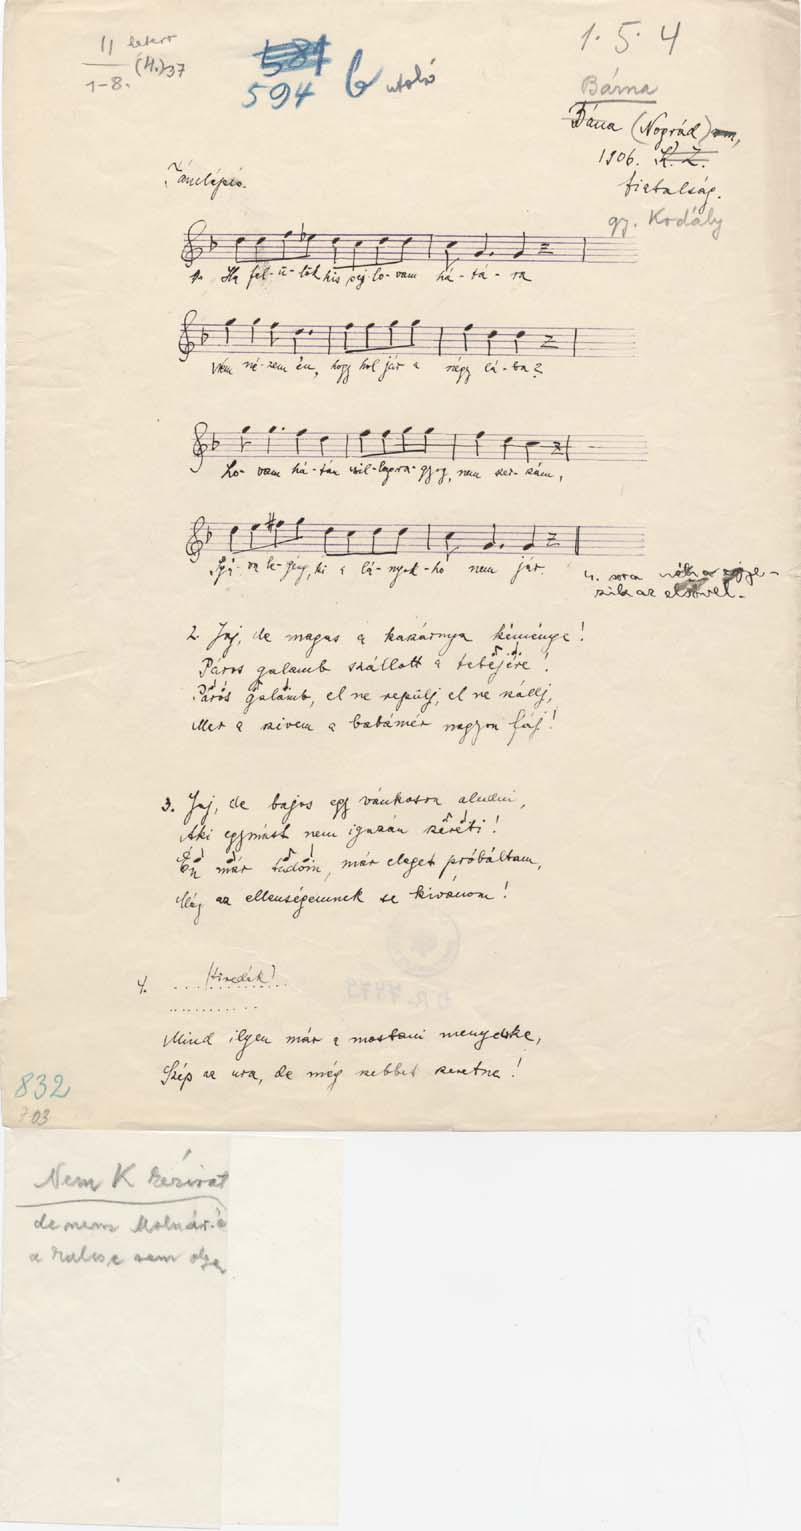 1. 5. 4
11
1-8. (4.) 37
581
594 b utolsó
Bárna
Bárna (Nógrád)
1906. K. Z.
fiatalság.
gy. Kodály
Tánclépés.
1. Ha fel-ü-lök kis pej-lo-vam há-tá-ra
Nem né-zem én, hogy hol jár a négy lá-ba?
Lo-vam há-tán csil-lagra-gyog, nem szer-szám,
Gyá-va le-gény, ki a lá-nyok-hó nem jár.
4. sora
szik az elsővel.
2. Jaj, de magas a kaszárnya kéménye!
Páros galamb szállott a tetejére!
Páros galamb, el ne repülj, el ne szállj,
Mer a szivem a babámér nagyon fáj!
3. Jaj, de bajos egy vánkoson aludni,
Aki egymást nem igazán szereti!
Én már tudom, már eleget próbáltam,
Még az ellenségemnek se kivánom!
4. . . . (Hiredik) . . .
. . . . . . . . . .
Mind ilyen már a mostani menyecske,
Szép az ura, de még szebbet szeretne!
832
703
Nem K kézirat
de nem Molnár-é
a kulcsa sem olyan